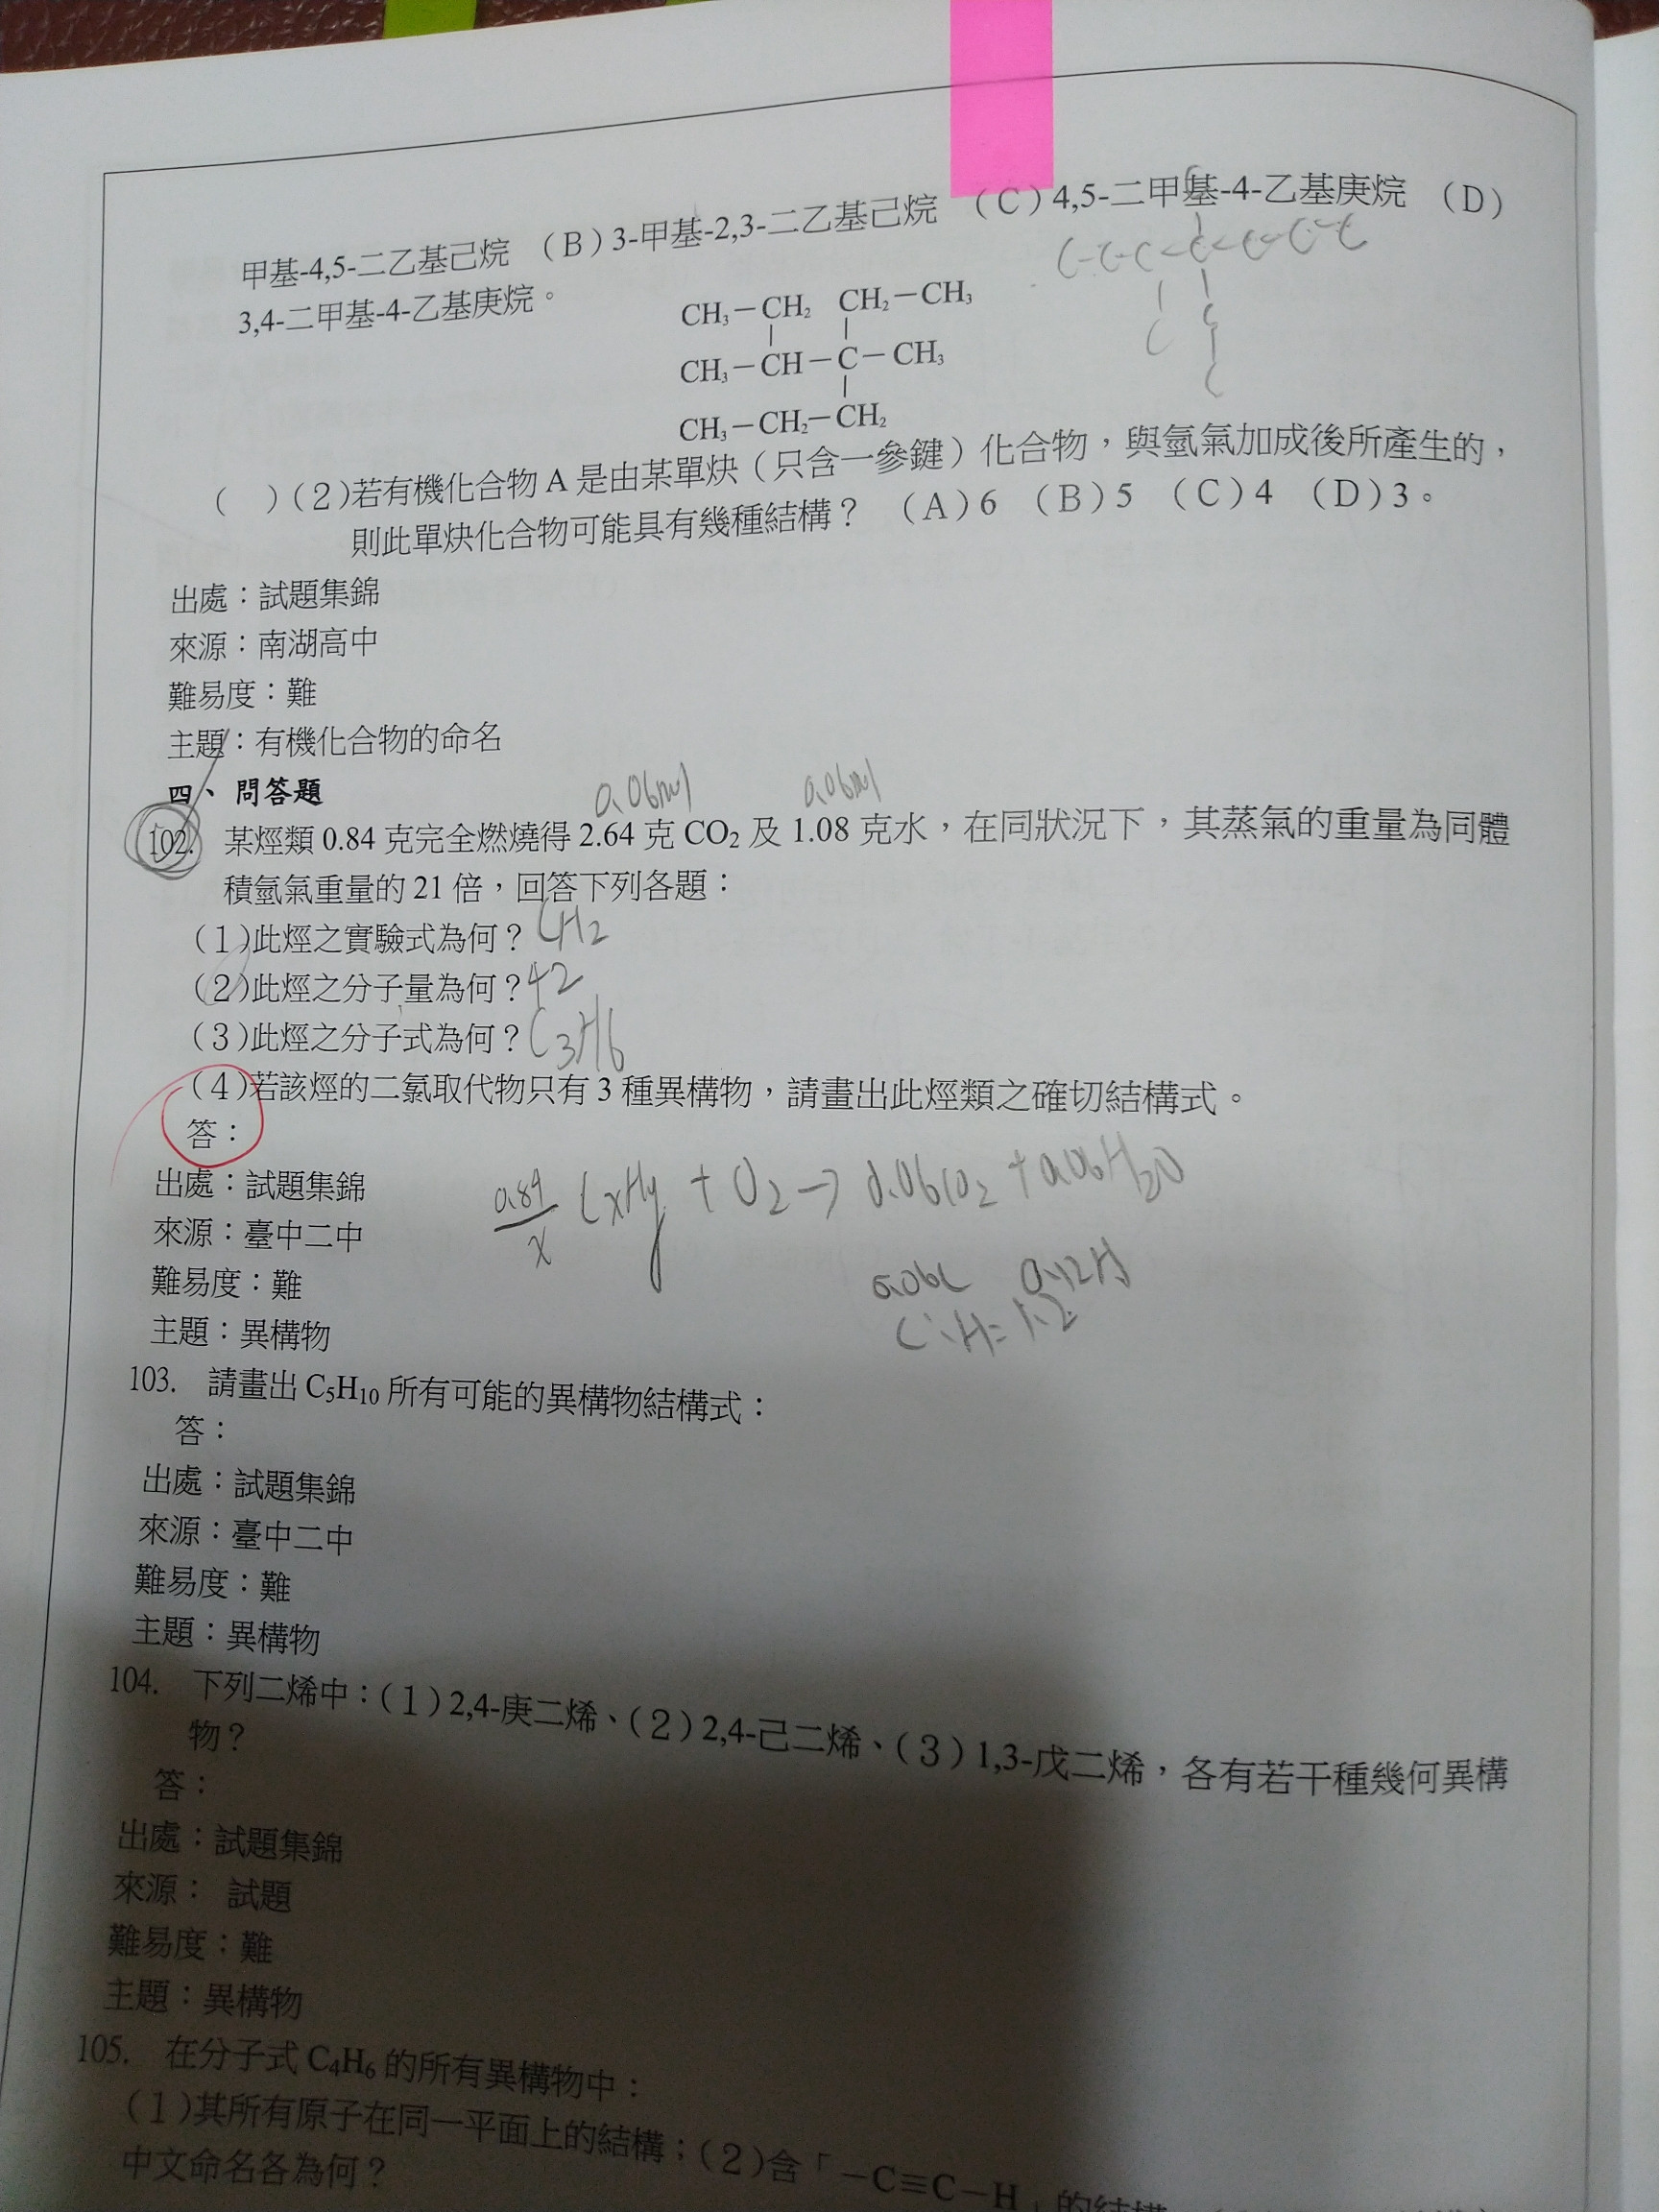 甲基-4,5-二乙基己烷 （B）3-甲基-2,3-二乙基己烷 （C）4,5-二甲基-4-乙基庚烷 （D）
3,4-二甲基-4-乙基庚烷。
C-C-C-C-C-C-C
C
C
C
C
CH₃－CH₂ CH₂－CH₃
CH₃－CH－C－CH₃
CH₃－CH₂－CH₂
（ ）（2）若有機化合物 A 是由某單炔（只含一參鍵）化合物，與氫氣加成後所產生的，
則此單炔化合物可能具有幾種結構？ （A）6 （B）5 （C）4 （D）3。
出處：試題集錦
來源：南湖高中
難易度：難
主題：有機化合物的命名
四、 問答題
0.06ml 0.06ml
102. 某烴類 0.84 克完全燃燒得 2.64 克 CO₂ 及 1.08 克水，在同狀況下，其蒸氣的重量為同體
積氫氣重量的 21 倍，回答下列各題：
（1）此烴之實驗式為何？ CH₂
（2）此烴之分子量為何？ 42
（3）此烴之分子式為何？ C₃H₆
（4）若該烴的二氯取代物只有 3 種異構物，請畫出此烴類之確切結構式。
答：
0.84/x CxHy + O₂ → 0.06CO₂ + 0.06H₂O
0.06C 0.12H
C:H=1:2
出處：試題集錦
來源：臺中二中
難易度：難
主題：異構物
103. 請畫出 C₅H₁₀ 所有可能的異構物結構式：
答：
出處：試題集錦
來源：臺中二中
難易度：難
主題：異構物
104. 下列二烯中：（1）2,4-庚二烯、（2）2,4-己二烯、（3）1,3-戊二烯，各有若干種幾何異構
物？
答：
出處：試題集錦
來源： 試題
難易度：難
主題：異構物
105. 在分子式 C₄H₆ 的所有異構物中：
（1）其所有原子在同一平面上的結構；（2）含「－C≡C－H」的結構
中文命名各為何？